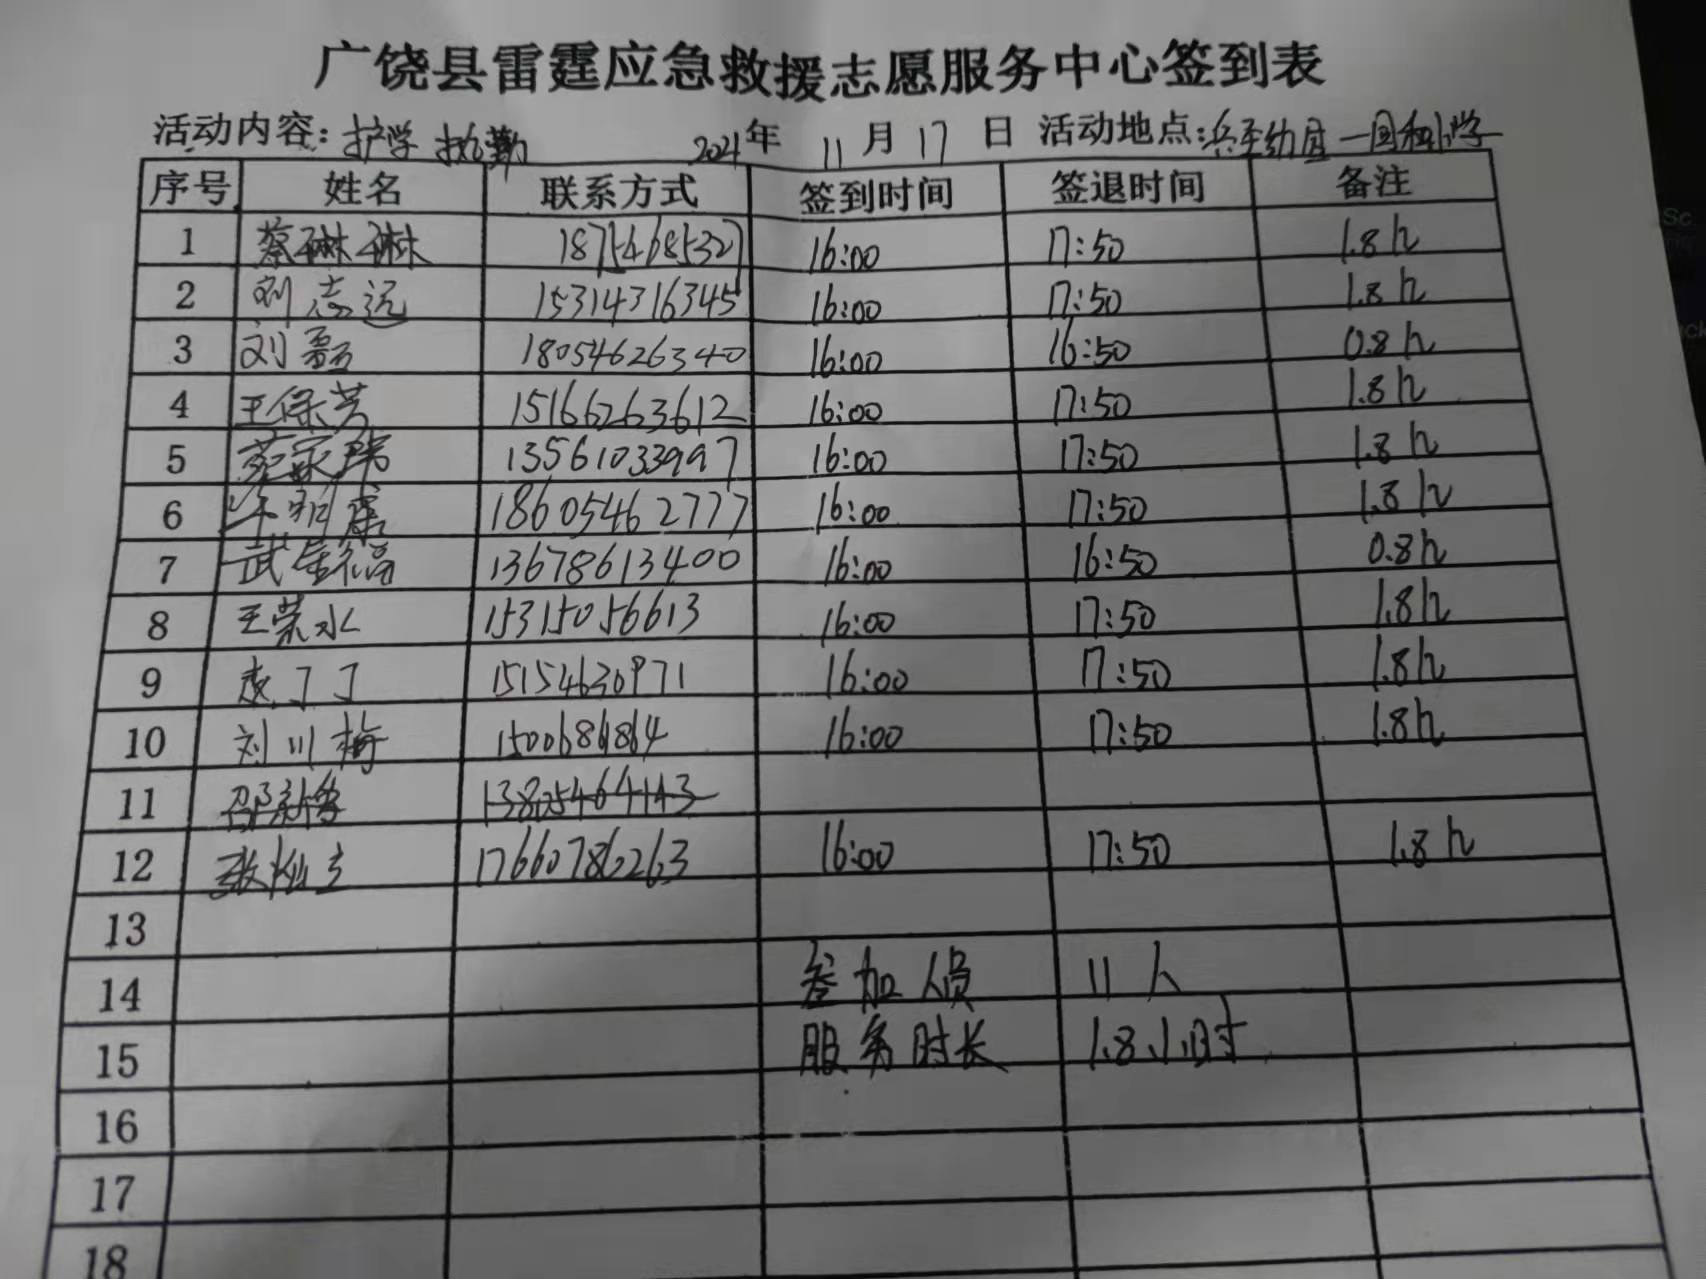 广饶县雷霆应急救援志愿服务中心签到表
活动内容：护学 执勤 2021年 11月17日 活动地点：乐安幼园 一国和小学
序号 姓名 联系方式 签到时间 签退时间 备注
1 蔡琳琳 18754685327 16:00 17:50 1.8h
2 刘志远 15314316345 16:00 17:50 1.8h
3 刘磊 18054626340 16:00 16:50 0.8h
4 王保芳 15166263612 16:00 17:50 1.8h
5 13561033997 16:00 17:50 1.8h
6 18605462777 16:00 17:50 1.8h
7 武 福 13678613400 16:00 16:50 0.8h
8 王荣水 15315056613 16:00 17:50 1.8h
9 丁丁 15154630971 16:00 17:50 1.8h
10 刘川梅 1500686864 16:00 17:50 1.8h
11 邵新 13805464143
12 张 17660786263 16:00 17:50 1.8h
13
14 参加人员 11人
15 服务时长 1.8小时
16
17
18